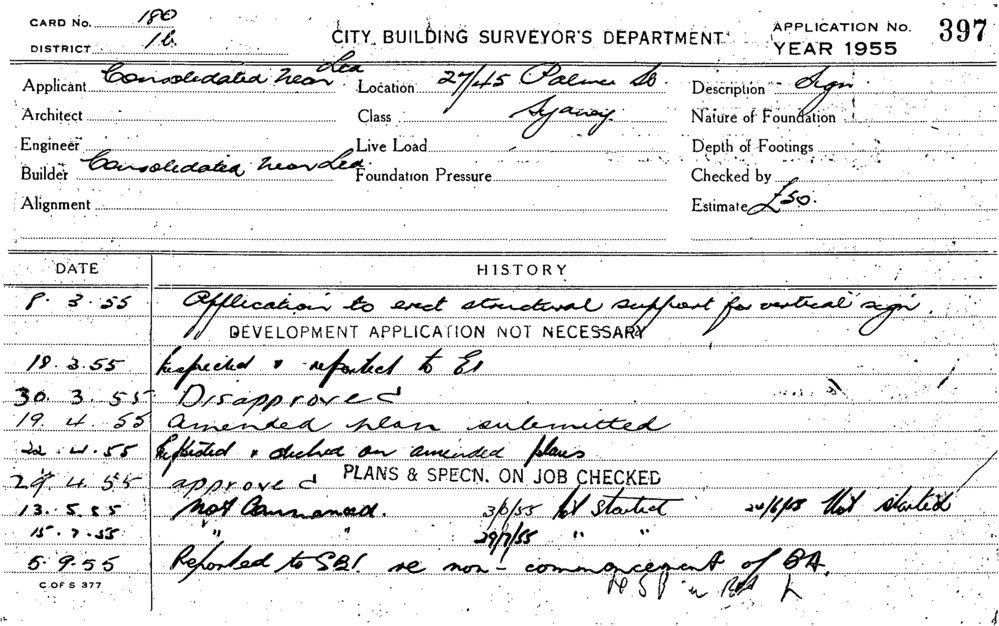 CARD No. 180
DISTRICT 1b.
CITY BUILDING SURVEYOR'S DEPARTMENT
APPLICATION No. 397
YEAR 1955
Applicant Consolidated Neon Ltd
Location 27/45 Palmer St
Description Sign
Architect
Class Sydney
Nature of Foundation
Engineer
Live Load
Depth of Footings
Builder Consolidated Neon Ltd.
Foundation Pressure
Checked by
Alignment
Estimate £50.
DATE HISTORY
8. 3. 55 Application to erect structural support for vertical sign.
DEVELOPMENT APPLICATION NOT NECESSARY
18. 3. 55 Inspected & reported to
30. 3. 55 Disapproved
19. 4. 55 Amended plan submitted
22. 4. 55 on amended plans
PLANS & SPECN. ON JOB CHECKED
29. 4. 55 approved
13. 5. 55 Not Commenced. 3/6/55 Not started 24/6/55 Not started
15. 7. 55 " " 29/7/55 " "
5. 9. 55 Reported to SBI re non-commencement of BA.
C. OF S 377